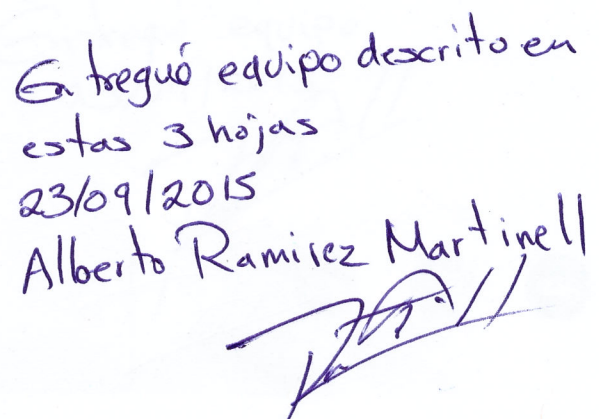 Entreguó equipo descrito en
estas 3 hojas
23/09/2015
Alberto Ramirez Martinell